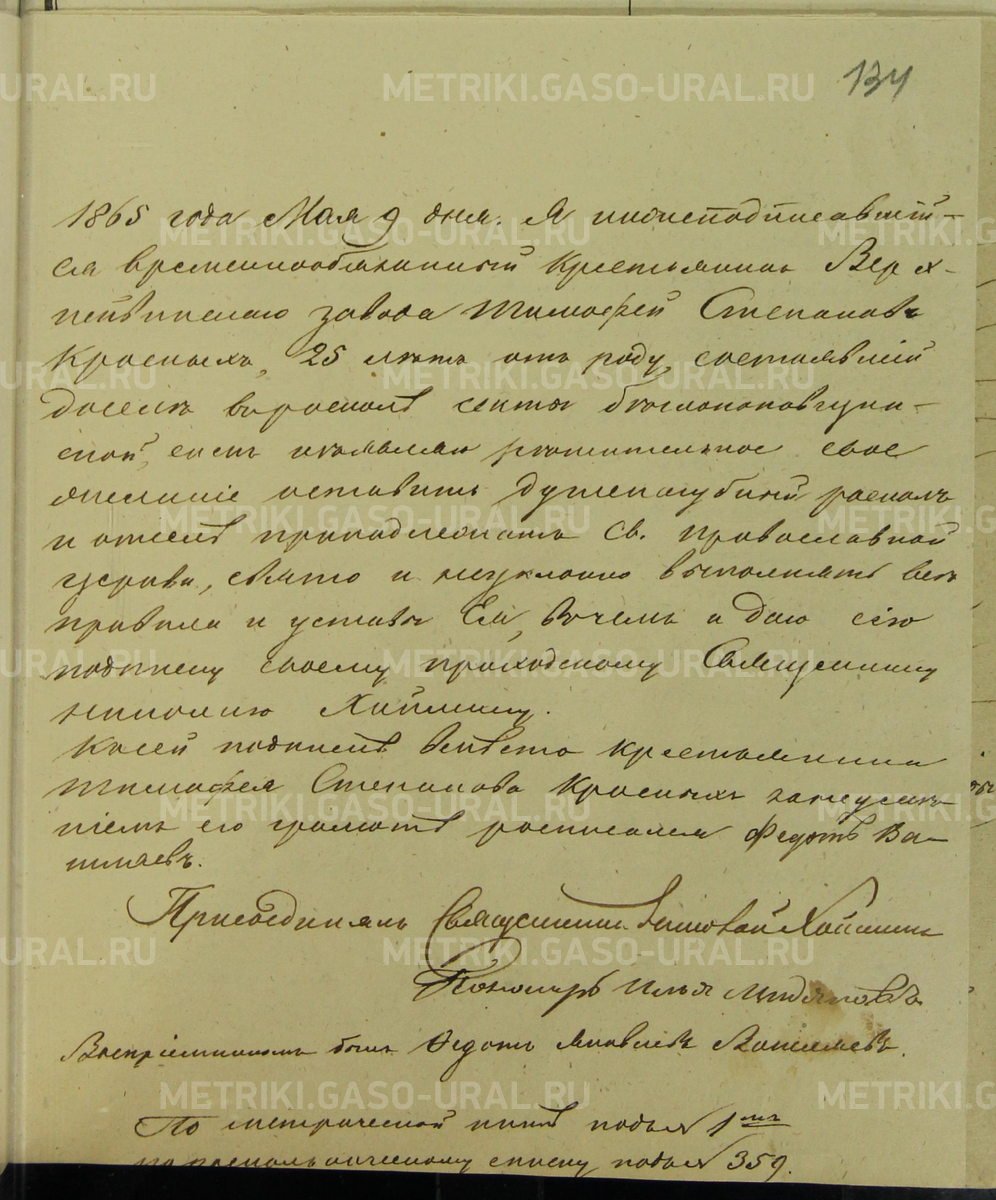 134
1865 года Мая 9 дня. Я нижеподписавшій-
ся временнообязанный крестьянинъ Верх-
нейвинскаго завода Тимофей Степановъ
Красныхъ, 25 лѣтъ отъ роду, состоявшій
доселѣ въ расколѣ секты безпоповщин-
ской, симъ изъявляю рѣшительное свое
желаніе оставить душепагубный расколъ
и отселѣ принадлежать Св. православной
церкви, свято и неуклонно выполнять всѣ
правила и уставы Ея, въ чемъ и даю сію
подписку своему приходскому Священнику
Хайлину.
К сей подпискѣ вмѣсто крестьянина
Тимофея Степанова Красныхъ за неумѣ-
ніемъ его грамотѣ росписался Федотъ Ва-
шляевъ.
Присоединялъ Священникъ Хайлинъ
Пономарь Илья
Воспріемникомъ былъ Федотъ Яковлевъ Вашляевъ.
По метрической книгѣ подъ № 1мъ
по исповѣдному списку подъ № 359.
METRIKI.GASO-URAL.RU